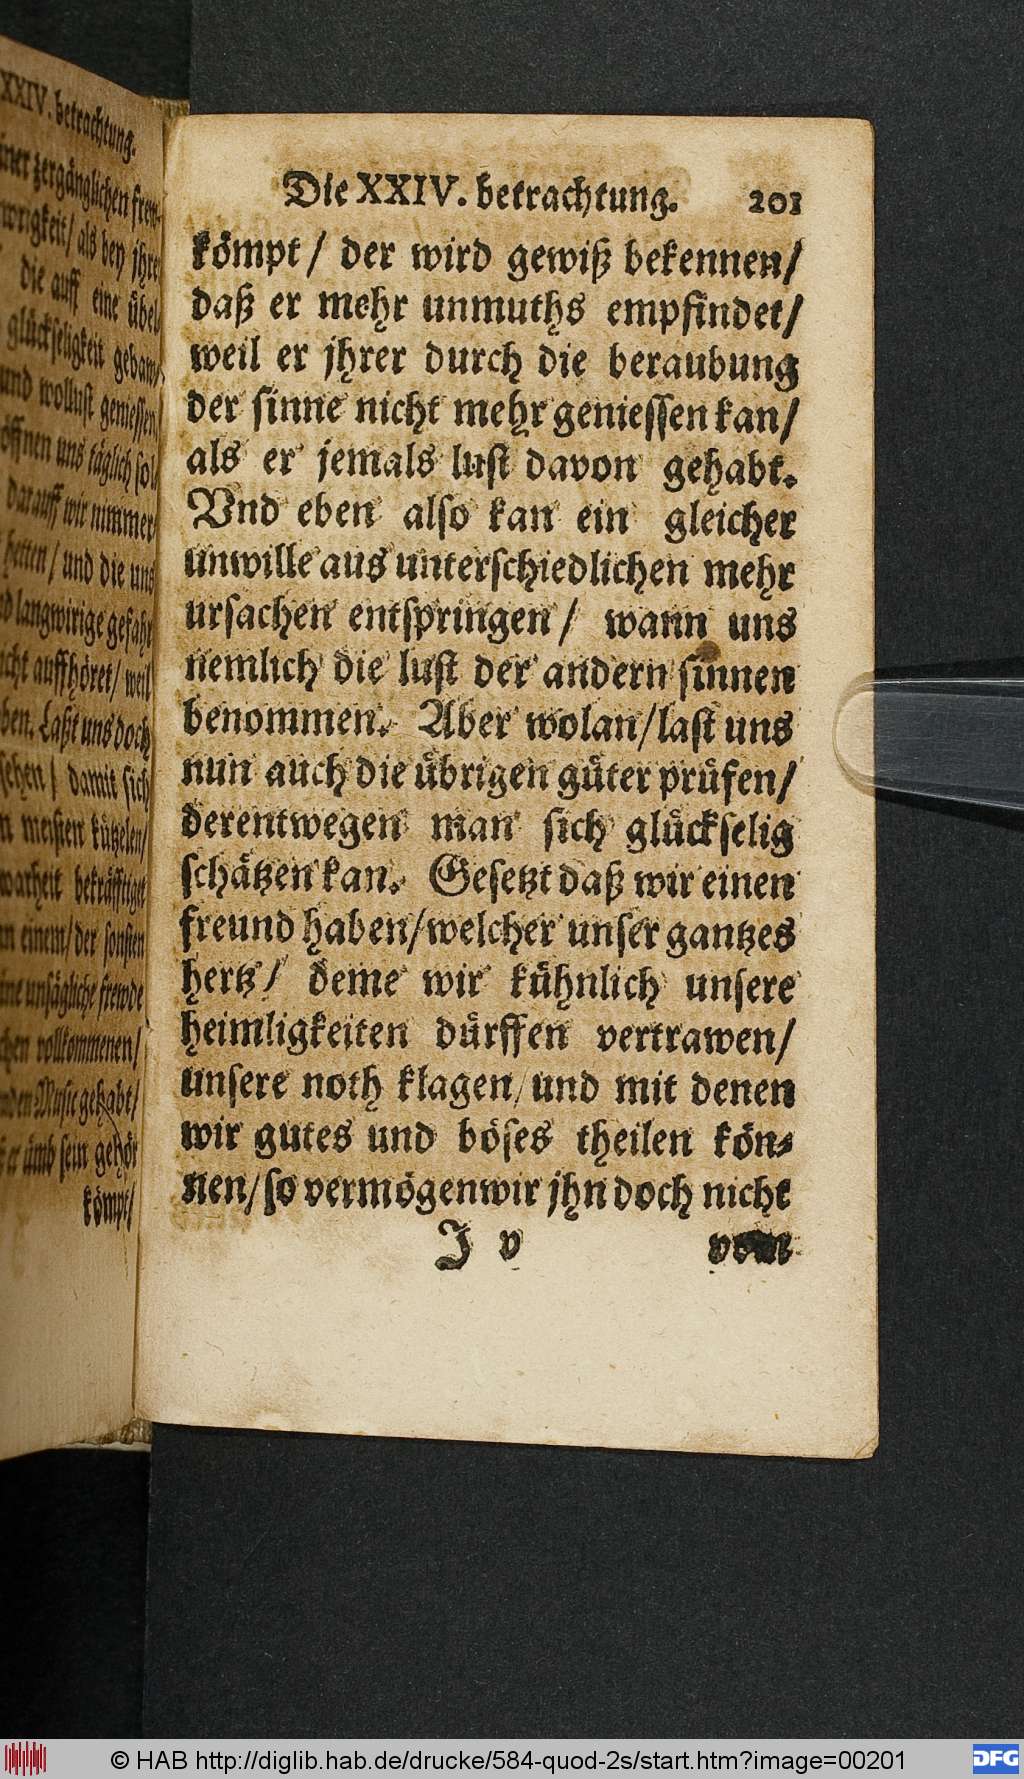 XXIV. betrachtung.
zergänglichen frew-
als bey jhre
die auff eine übel
glückseligkeit gebaw
und wollust geniessen
öffnen uns täglich sol
darauff wir nimmer
hetten/ und die uns
langwirige gefahr
auffhöret/ weil
Laßt uns doch
sehen/ damit sich
meisten kützelen/
warheit bekräfftiget
einem/ der sonsten
unsägliche frewde
vollkommenen/
Music gehabt/
umb sein gehör
kömpt/
Die XXIV. betrachtung. 201
kömpt/ der wird gewiß bekennen/
daß er mehr unmuths empfindet/
weil er jhrer durch die beraubung
der sinne nicht mehr geniessen kan/
als er jemals lust davon gehabt.
Vnd eben also kan ein gleicher
unwille aus unterschiedlichen mehr
ursachen entspringen/ wann uns
nemlich die lust der andern sinnen
benommen. Aber wolan/ last uns
nun auch die übrigen güter prüfen/
derentwegen man sich glückselig
schätzen kan. Gesetzt daß wir einen
freund haben/ welcher unser gantzes
hertz/ deme wir kühnlich unsere
heimligkeiten dürffen vertrawen/
unsere noth klagen/ und mit denen
wir gutes und böses theilen kön-
nen/ so vermögen wir jhn doch nicht
J v vom
© HAB http://diglib.hab.de/drucke/584-quod-2s/start.htm?image=00201
DFG